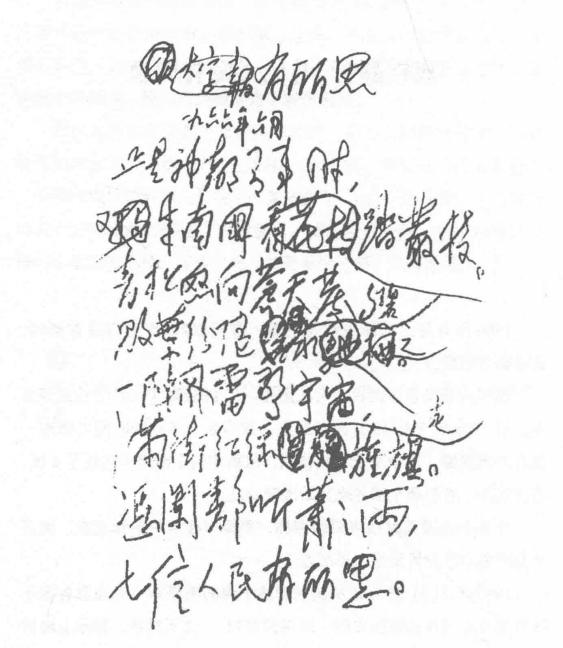 有所思
九六六年六月
正是神都有事时,
又来南国踏叢枝。
青松怒向苍天发,
败葉纷随碧水驰。
一阵风雷惊宇宙,
满街红绿走旌旗。
凭阑静听萧萧雨,
七亿人民有所思。